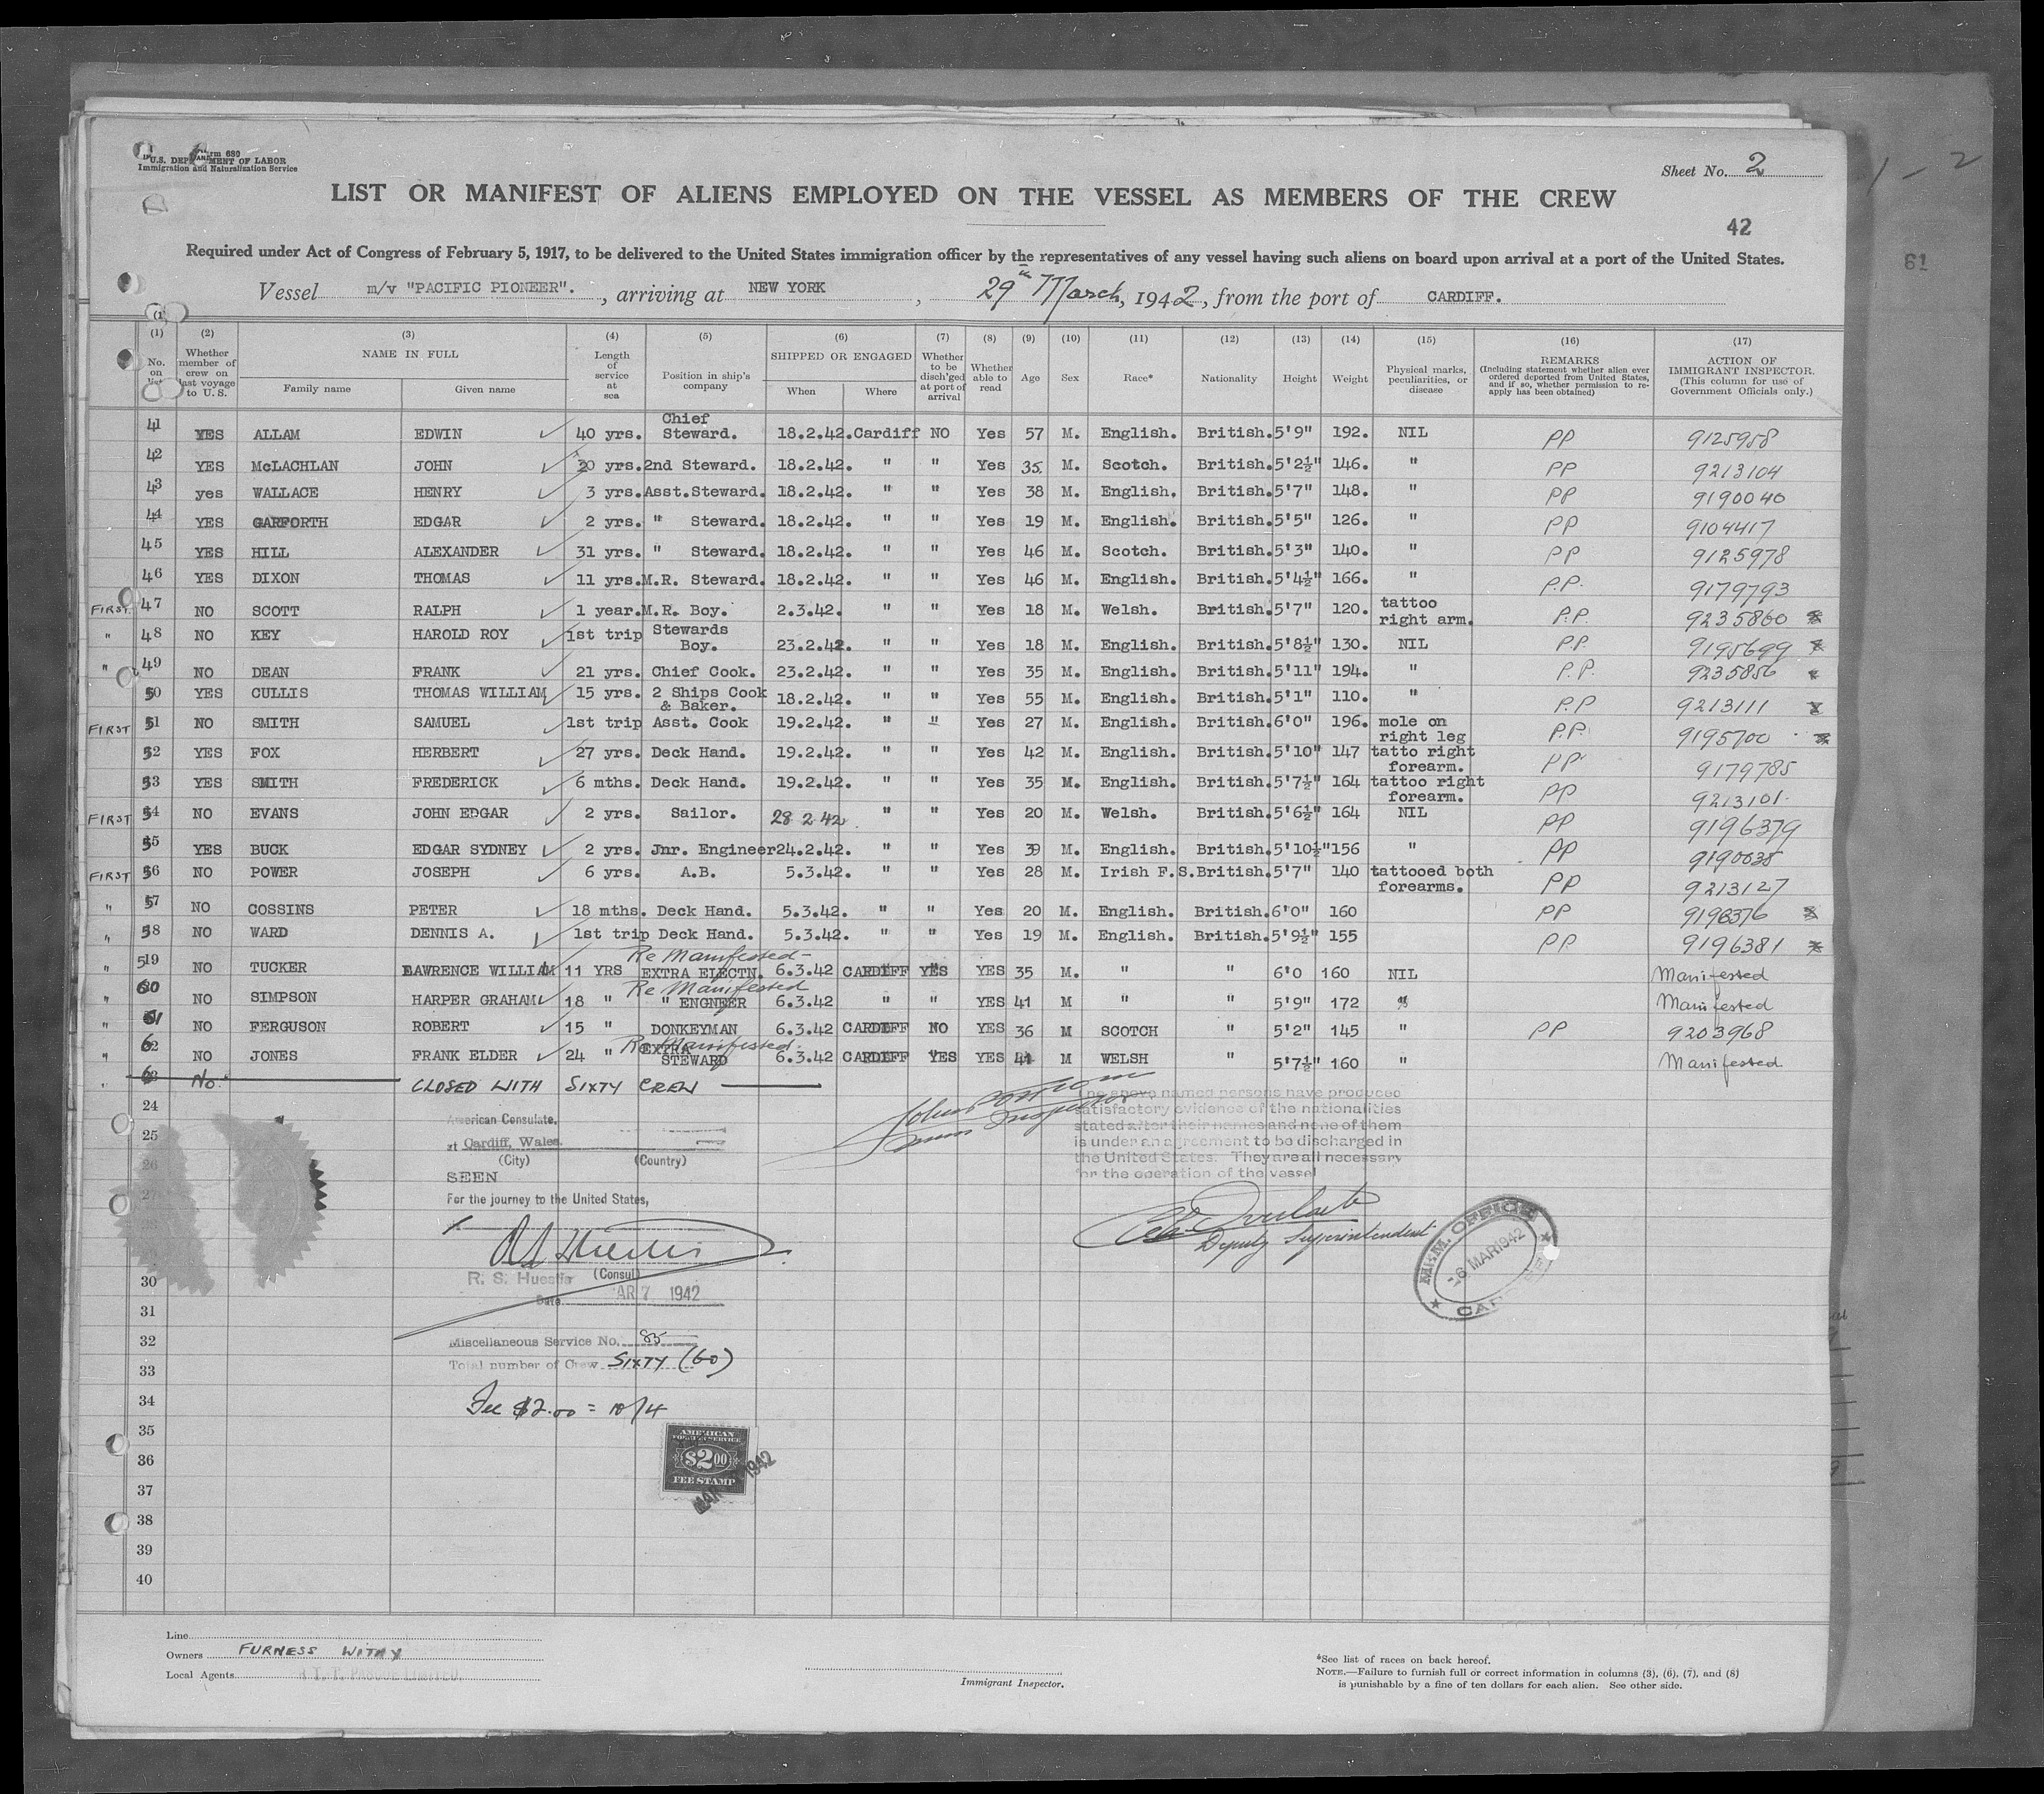 Form 689
U.S. DEPARTMENT OF LABOR
Immigration and Naturalization Service
Sheet No. 2
1 - 2
LIST OR MANIFEST OF ALIENS EMPLOYED ON THE VESSEL AS MEMBERS OF THE CREW
42
61
Required under Act of Congress of February 5, 1917, to be delivered to the United States immigration officer by the representatives of any vessel having such aliens on board upon arrival at a port of the United States.
Vessel m/v "PACIFIC PIONEER". , arriving at NEW YORK , 29th March, 1942, from the port of CARDIFF.
(1) (2) (3) (4) (5) (6) (7) (8) (9) (10) (11) (12) (13) (14) (15) (16) (17)
No. on list
Whether member of crew on last voyage to U. S.
NAME IN FULL
Family name Given name
Length of service at sea
Position in ship's company
SHIPPED OR ENGAGED
When Where
Whether to be disch'ged at port of arrival
Whether able to read
Age
Sex
Race*
Nationality
Height
Weight
Physical marks, peculiarities, or disease
REMARKS
(Including statement whether alien ever ordered deported from United States, and if so, whether permission to re-apply has been obtained)
ACTION OF IMMIGRANT INSPECTOR.
(This column for use of Government Officials only.)
41 YES ALLAM EDWIN 40 yrs. Chief Steward. 18.2.42. Cardiff NO Yes 57 M. English. British. 5'9" 192. NIL PP 9125958
42 YES McLACHLAN JOHN 20 yrs. 2nd Steward. 18.2.42. " " Yes 35 M. Scotch. British. 5'2½" 146. " PP 9213104
43 yes WALLACE HENRY 3 yrs. Asst.Steward. 18.2.42. " " Yes 38 M. English. British. 5'7" 148. " PP 9190040
44 YES GARFORTH EDGAR 2 yrs. " Steward. 18.2.42. " " Yes 19 M. English. British. 5'5" 126. " PP 9104417
45 YES HILL ALEXANDER 31 yrs. " Steward. 18.2.42. " " Yes 46 M. Scotch. British. 5'3" 140. " PP 9125978
46 YES DIXON THOMAS 11 yrs. M.R. Steward. 18.2.42. " " Yes 46 M. English. British. 5'4½" 166. " P.P. 9179793
FIRST 47 NO SCOTT RALPH 1 year. M.R. Boy. 2.3.42. " " Yes 18 M. Welsh. British. 5'7" 120. tattoo right arm. P.P. 9235860
" 48 NO KEY HAROLD ROY 1st trip Stewards Boy. 23.2.42. " " Yes 18 M. English. British. 5'8½" 130. NIL P.P. 9195699
" 49 NO DEAN FRANK 21 yrs. Chief Cook. 23.2.42. " " Yes 35 M. English. British. 5'11" 194. " P.P. 9235856
50 YES CULLIS THOMAS WILLIAM 15 yrs. 2 Ships Cook & Baker. 18.2.42. " " Yes 55 M. English. British. 5'1" 110. " P.P 9213111
FIRST 51 NO SMITH SAMUEL 1st trip Asst. Cook 19.2.42. " " Yes 27 M. English. British. 6'0" 196. mole on right leg P.P. 9195700
52 YES FOX HERBERT 27 yrs. Deck Hand. 19.2.42. " " Yes 42 M. English. British. 5'10" 147 tatto right forearm. PP 9179785
53 YES SMITH FREDERICK 6 mths. Deck Hand. 19.2.42. " " Yes 35 M. English. British. 5'7½" 164 tattoo right forearm. PP 9213101.
FIRST 54 NO EVANS JOHN EDGAR 2 yrs. Sailor. 28 2 42 " " Yes 20 M. Welsh. British. 5'6½" 164 NIL PP 9196379
55 YES BUCK EDGAR SYDNEY 2 yrs. Jnr. Engineer 24.2.42. " " Yes 39 M. English. British. 5'10½" 156 " PP 9190038
FIRST 56 NO POWER JOSEPH 6 yrs. A.B. 5.3.42. " " Yes 28 M. Irish F.S. British. 5'7" 140 tattooed both forearms. PP 9213127
" 57 NO COSSINS PETER 18 mths. Deck Hand. 5.3.42. " " Yes 20 M. English. British. 6'0" 160 PP 9196376
" 58 NO WARD DENNIS A. 1st trip Deck Hand. 5.3.42. " " Yes 19 M. English. British. 5'9½" 155 PP 9196381
Re Manifested-
" 59 NO TUCKER LAWRENCE WILLIAM 11 YRS EXTRA ELECTN. 6.3.42 CARDIFF YES YES 35 M. " " 6'0 160 NIL Manifested
Re Manifested
" 60 NO SIMPSON HARPER GRAHAM 18 " " ENGNEER 6.3.42 " " YES 41 M " " 5'9" 172 " Manifested
" 61 NO FERGUSON ROBERT 15 " DONKEYMAN 6.3.42 CARDIFF NO YES 36 M SCOTCH " 5'2" 145 " PP 9203968
Re Manifested.
" 62 NO JONES FRANK ELDER 24 " EXTRA STEWARD 6.3.42 CARDIFF YES YES 44 M WELSH " 5'7½" 160 " Manifested
" 63 No. CLOSED WITH SIXTY CREW
24
25
26
27
28
30
31
32
33
34
35
36
37
38
39
40
American Consulate,
at Cardiff, Wales.
(City) (Country)
SEEN
For the journey to the United States,
R. S. Huestis (Consul)
Date MAR 7 1942
Miscellaneous Service No. 85
Total number of Crew SIXTY (60)
Fee $2.00 = 10/4
AMERICAN
FOREIGN SERVICE
$2.00
FEE STAMP
MAR 1942
Inspector
The above named persons have produced
satisfactory evidence of the nationalities
stated after their names and none of them
is under an agreement to be discharged in
the United States. They are all necessary
for the operation of the vessel
Deputy Superintendent
M.M. OFFICE
-6 MAR 1942
CARDIFF
Line
Owners FURNESS WITHY
Local Agents
Immigrant Inspector.
*See list of races on back hereof.
NOTE.—Failure to furnish full or correct information in columns (3), (6), (7), and (8)
is punishable by a fine of ten dollars for each alien. See other side.